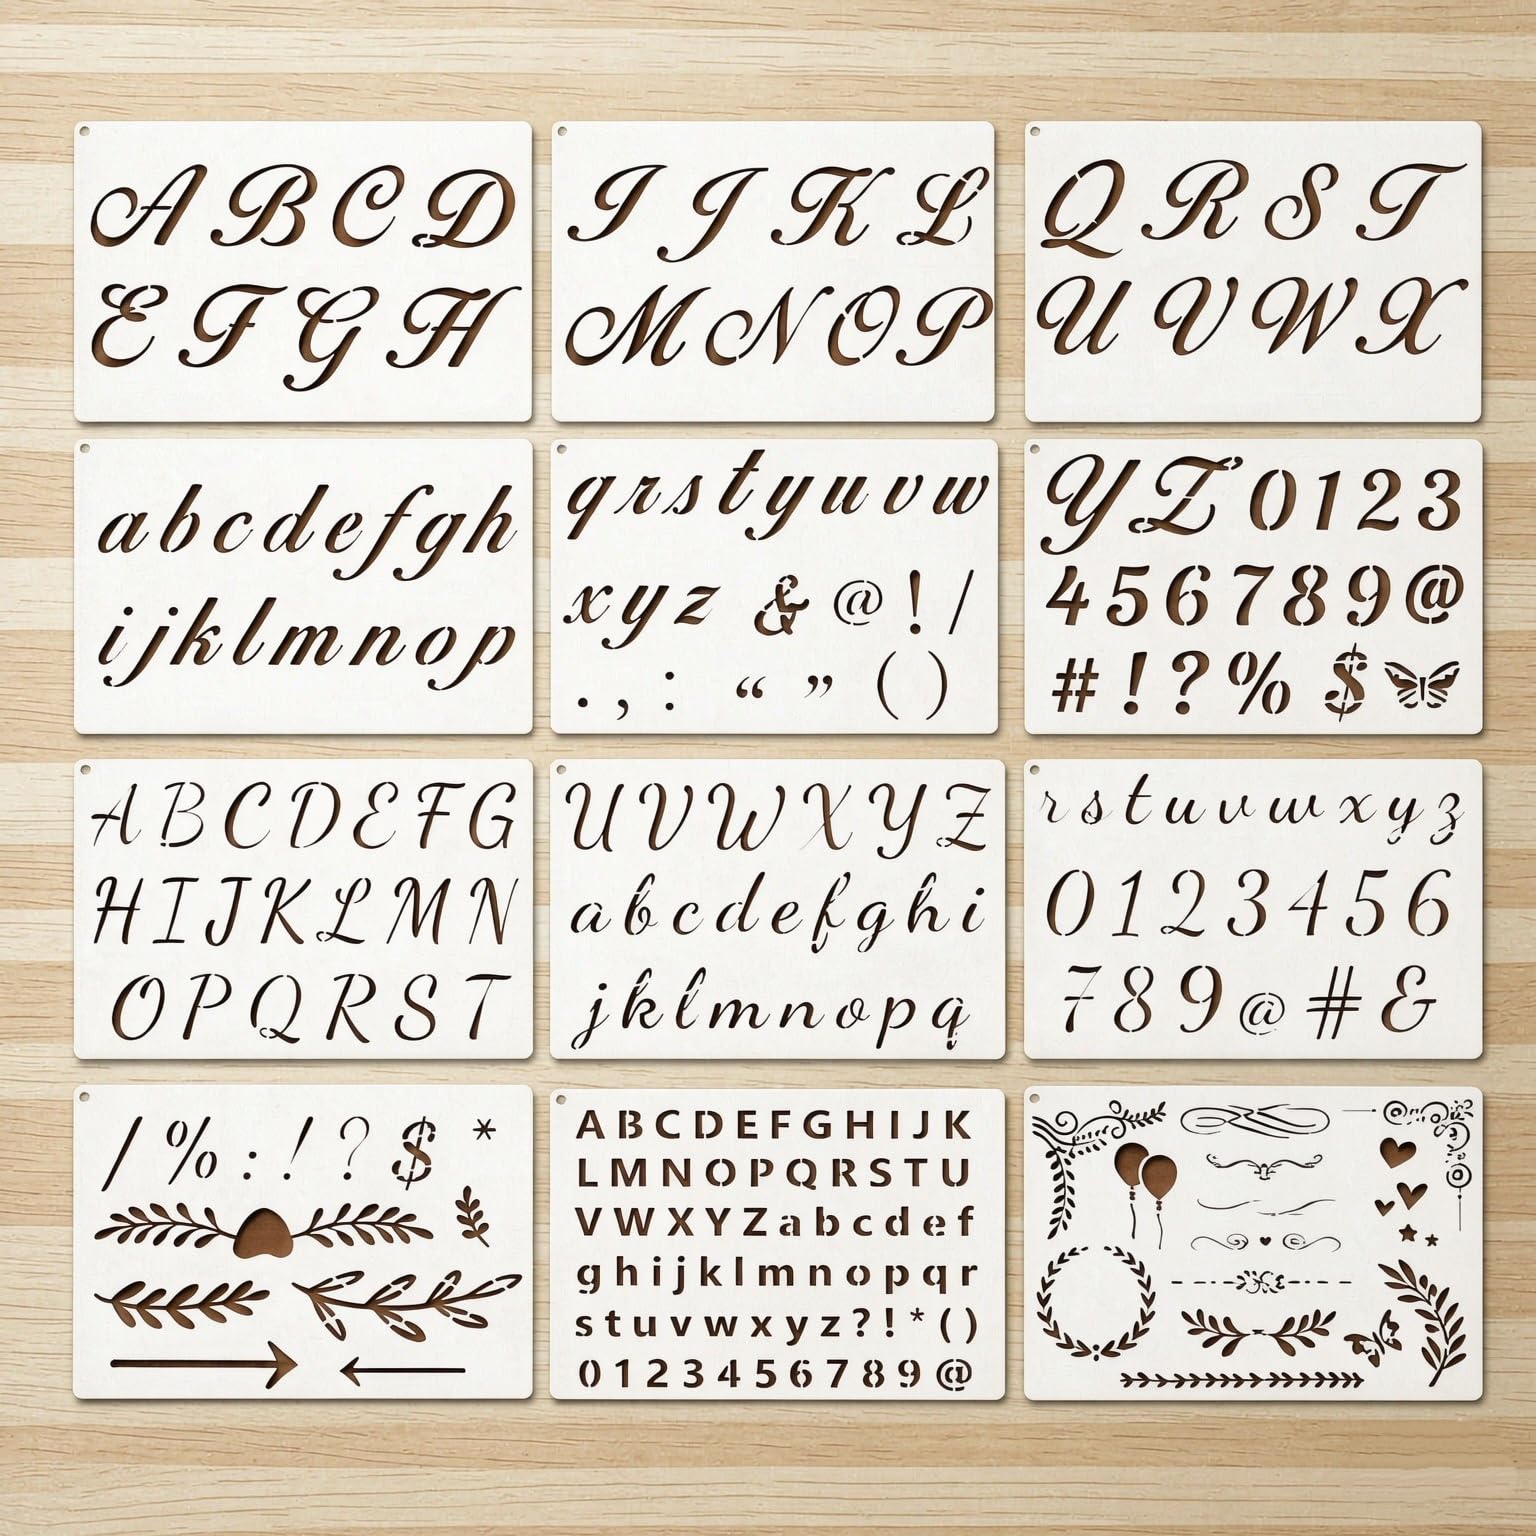 A B C D
E F G H
I J K L
M N O P
Q R S T
U V W X
a b c d e f g h
i j k l m n o p
q r s t y u v w
x y z & @ ! /
. , : “ ” ( )
Y Z 0 1 2 3
4 5 6 7 8 9 @
# ! ? % $
A B C D E F G
H I J K L M N
O P Q R S T
U V W X Y Z
a b c d e f g h i
j k l m n o p q
r s t u v w x y z
0 1 2 3 4 5 6
7 8 9 @ # &
/ % : ! ? $ *
A B C D E F G H I J K
L M N O P Q R S T U
V W X Y Z a b c d e f
g h i j k l m n o p q r
s t u v w x y z ? ! * ( )
0 1 2 3 4 5 6 7 8 9 @